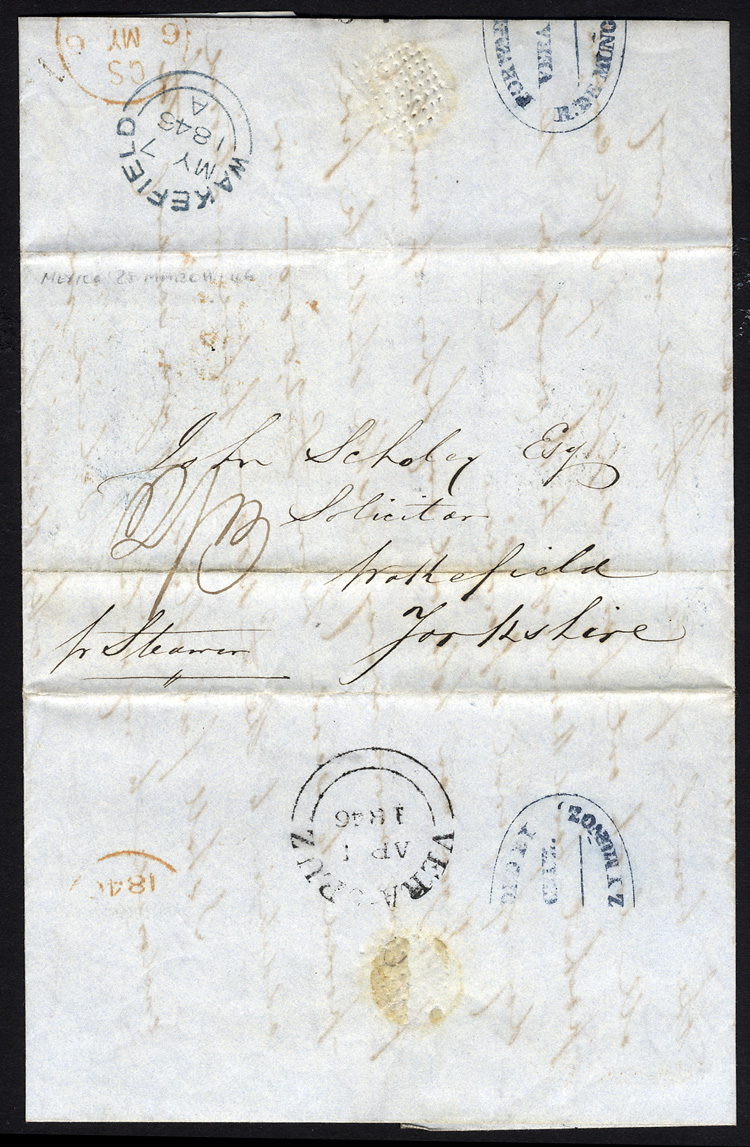 GS
6 MY 6
WAKEFIELD
MY 7
1846
A
FORWAR
VERA
R. DE MUNO
MEXICO 28 MARCH 1846
John Scholey Esq
Solicitor
Wakefield
Yorkshire
2/3
pr Steamer
VERA CRUZ
AP 1
1846
184
ED BY
CRUZ.
Z Y MUNOZ,